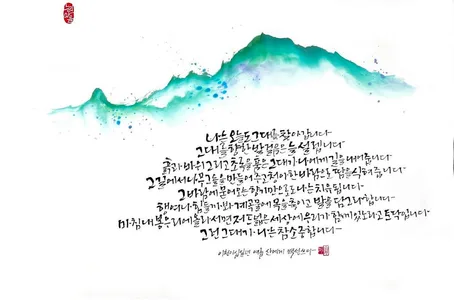 나는 오늘도 그대를 찾아갑니다
그대를 향한 발걸음은 늘 설렙니다
흙과 바위 그리고 초록을 품은 그대가 나에게 길을 내어줍니다
그 길에서 나무 그늘을 만들어주고 청아한 바람으로 땀을 식혀줍니다
그 바람에 묻어오는 향기만으로도 나는 치유됩니다
행여나 힘들까봐 계곡물에 목을 축이고 발을 담그라 합니다
마침내 봉우리에 올라서면 저 드넓은 세상에 우리가 함께 있노라고 토닥입니다
그런 그대가 나는 참 소중합니다
여름 산에게